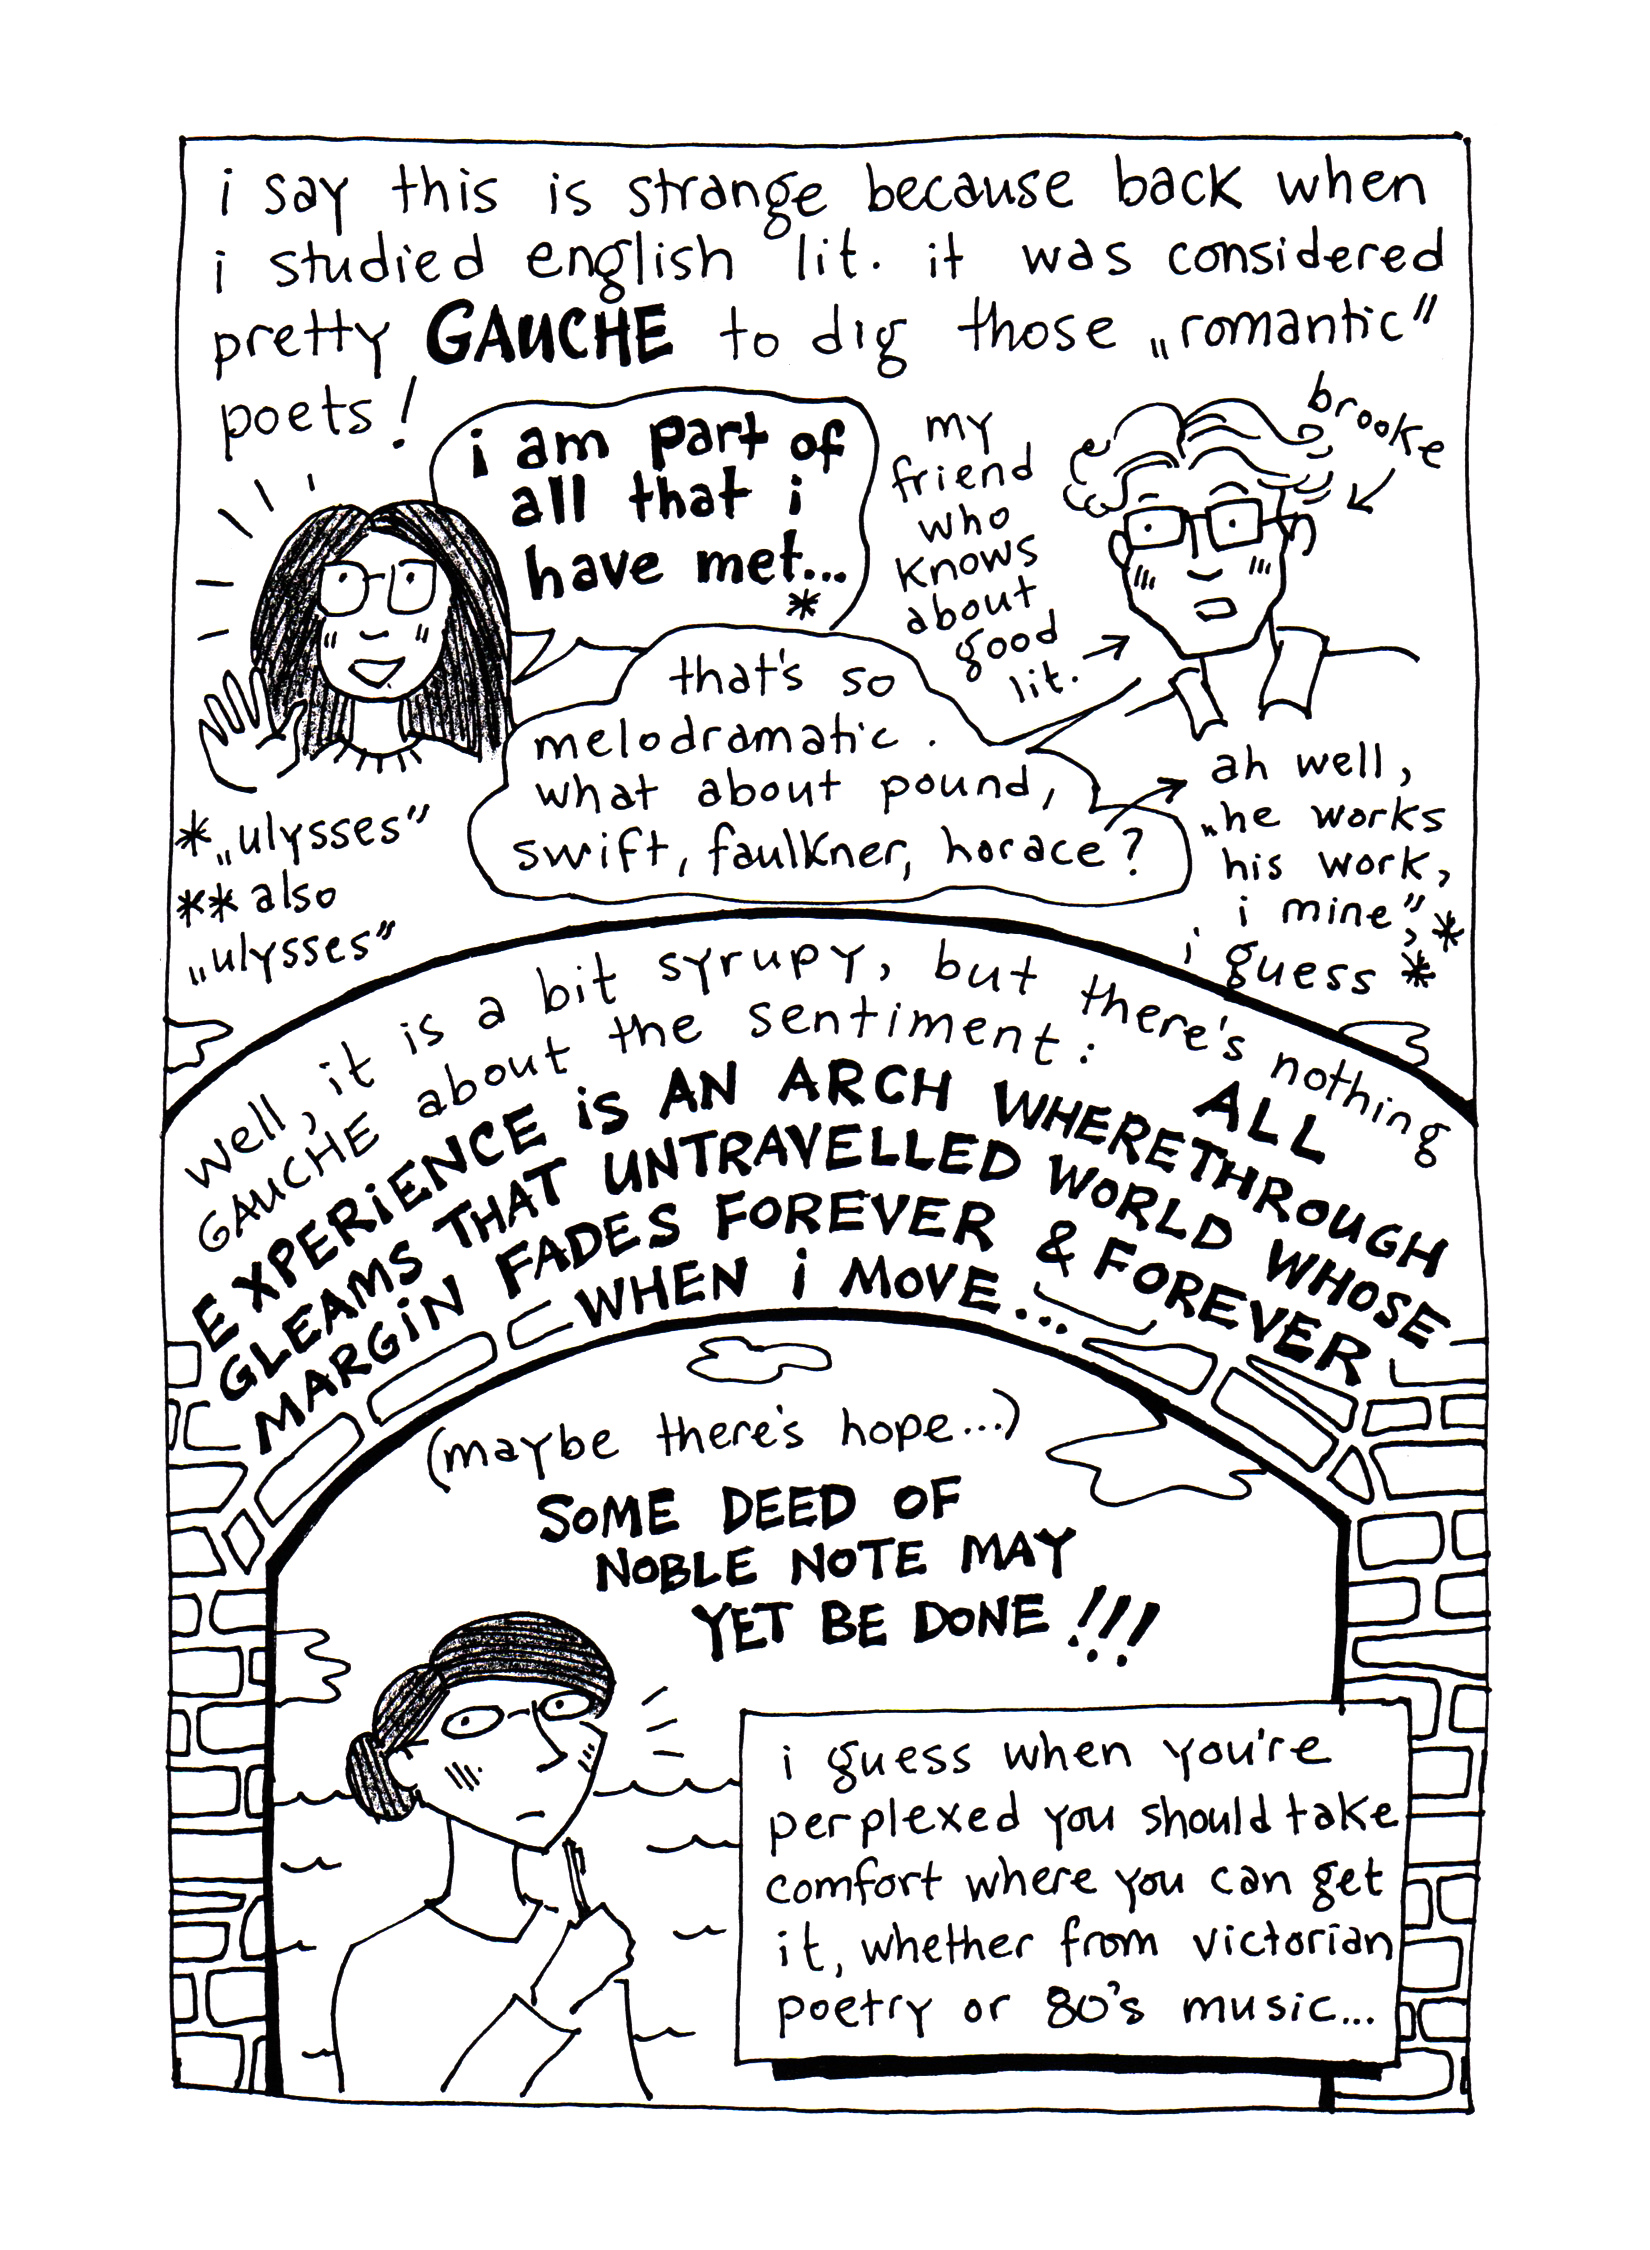 i say this is strange because back when
i studied english lit. it was considered
pretty GAUCHE to dig those „romantic"
poets!
i am part of
all that i
have met...
*
my
friend
who
knows
about
good
lit.
brooke
that's so
melodramatic.
what about pound,
swift, faulkner, horace?
ah well,
„he works
his work,
i mine",*
i guess *
* „ulysses"
** also
„ulysses"
well, it is a bit syrupy, but there's nothing
GAUCHE about the sentiment: ALL
EXPERIENCE iS AN ARCH WHERETHROUGH
GLEAMS THAT UNTRAVELLED WORLD WHOSE
MARGiN FADES FOREVER & FOREVER
WHEN i MOVE...
(maybe there's hope...)
SOME DEED OF
NOBLE NOTE MAY
YET BE DONE!!!
i guess when you're
perplexed you should take
comfort where you can get
it, whether from victorian
poetry or 80's music...